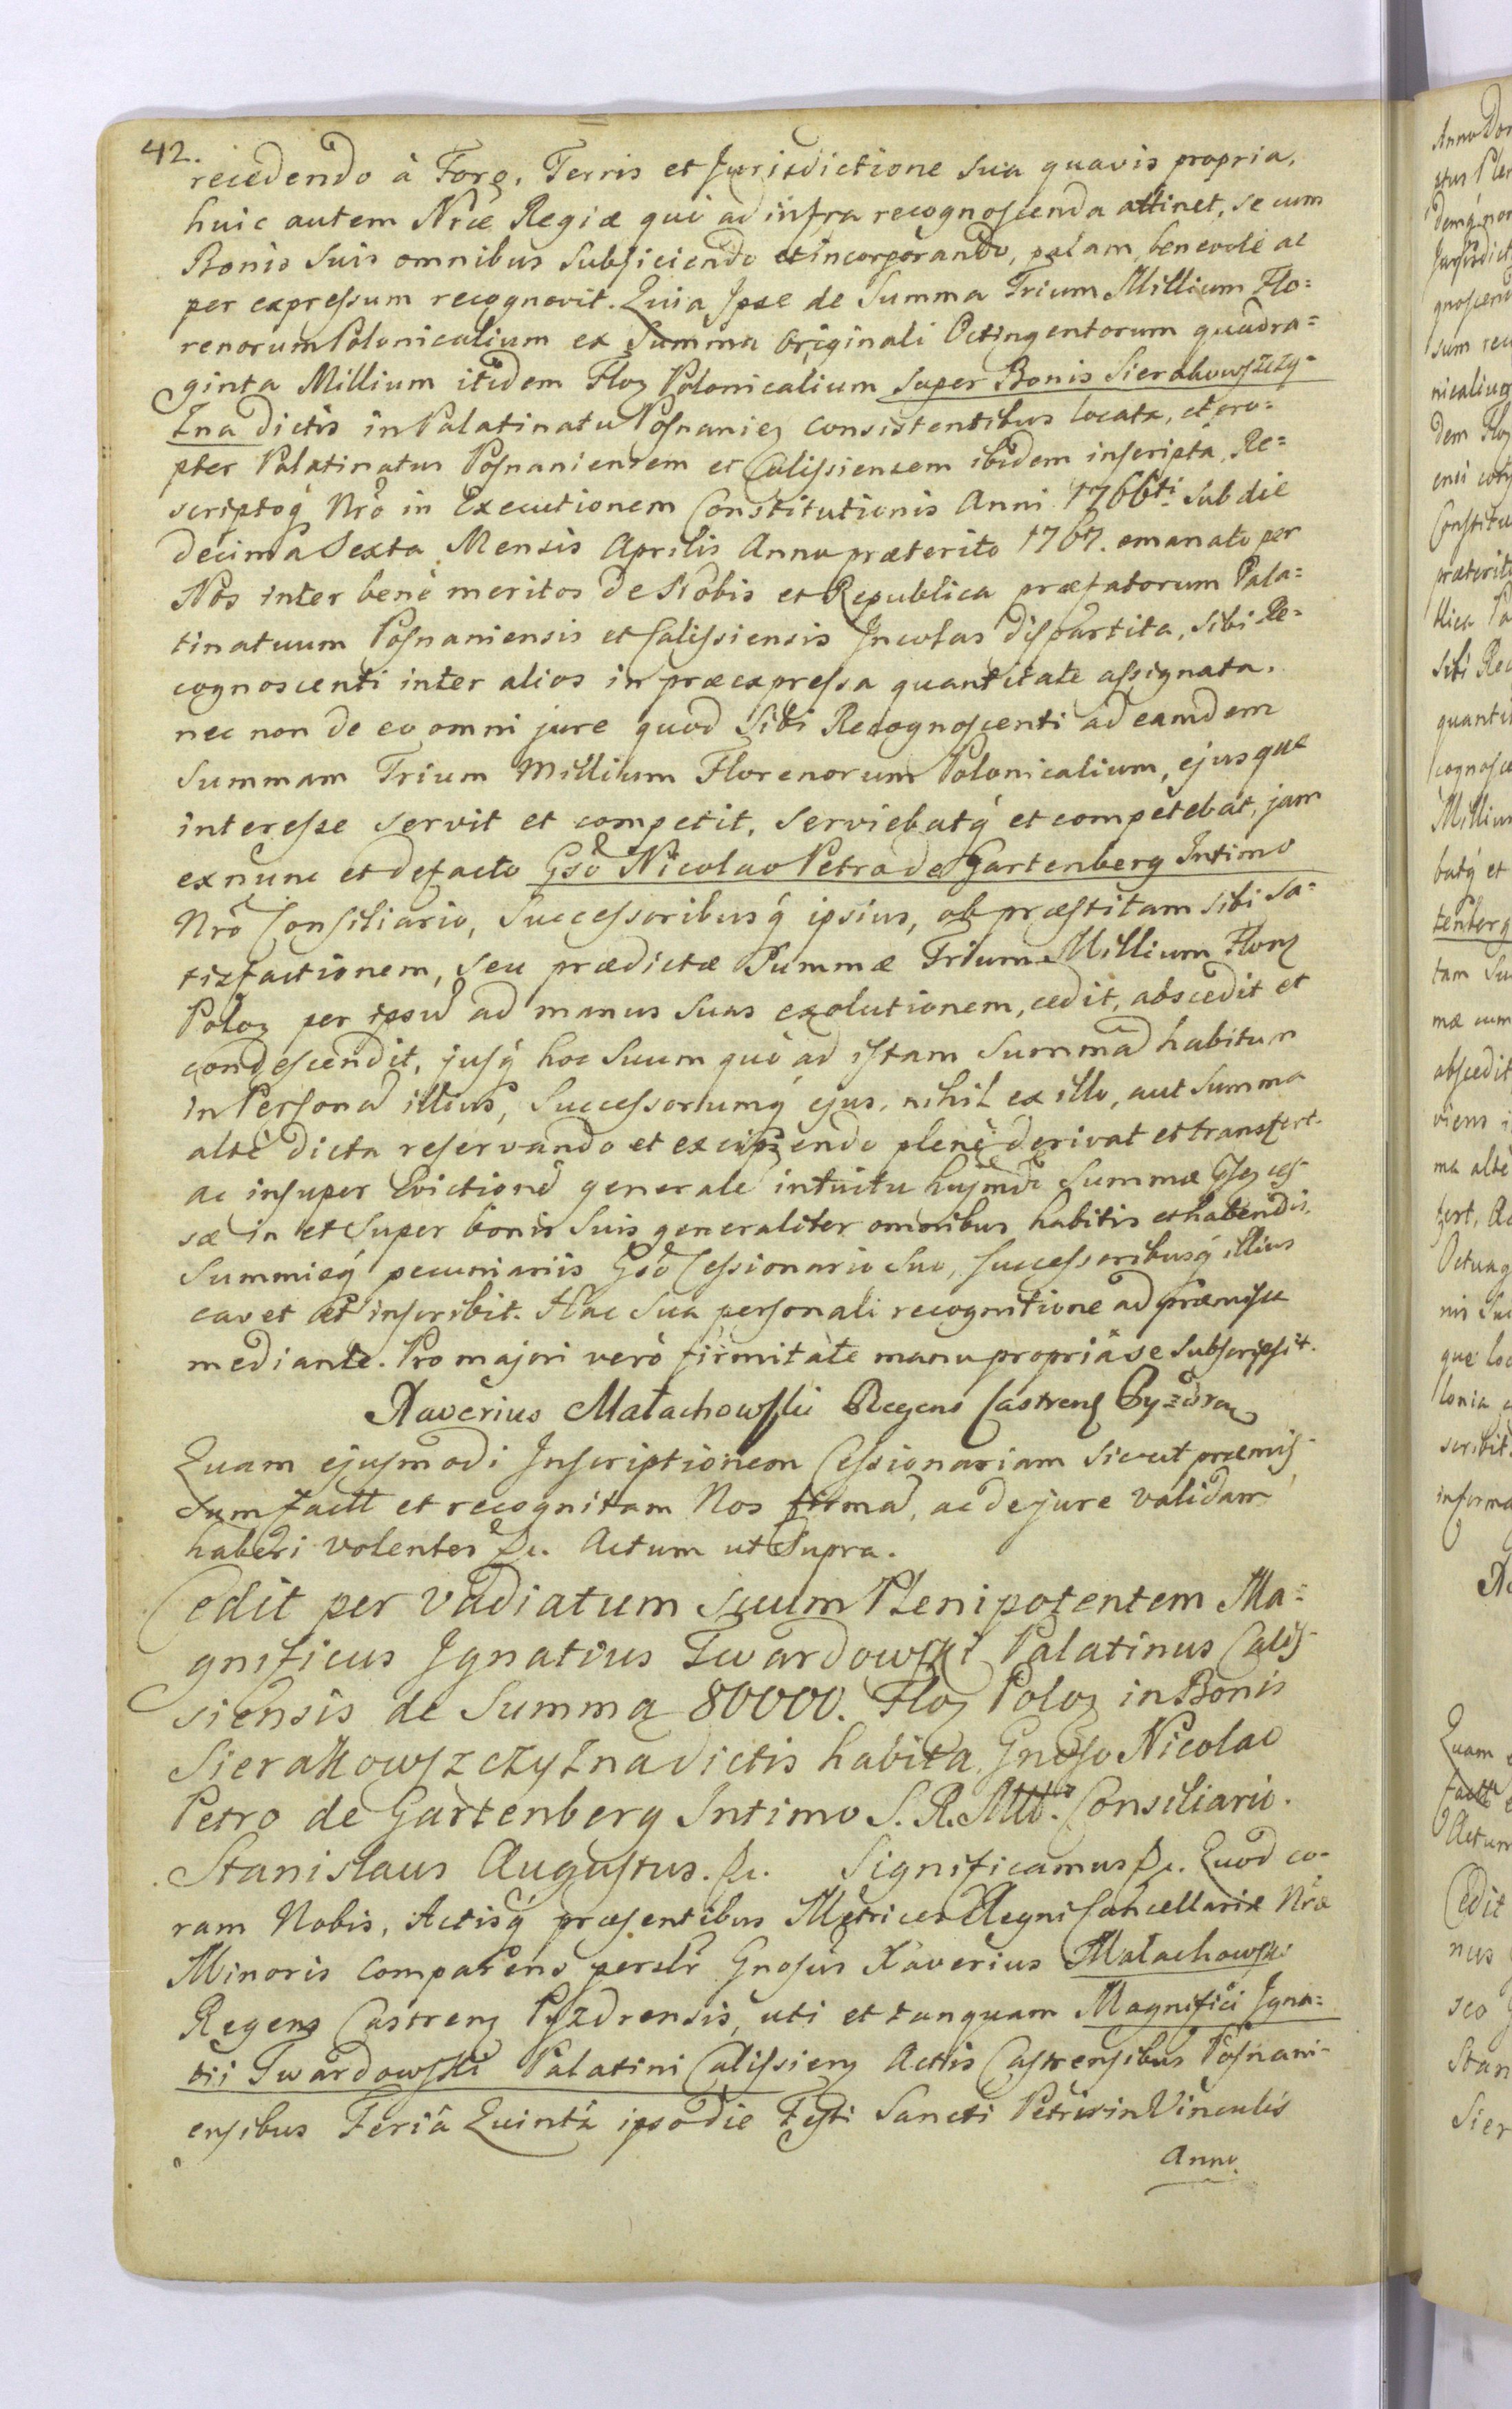 42.
recedendo à Foro, Terris et Jurisdictione sua quavis propria,
huic autem Nrae Regiæ quò ad infra recognoscenda attinet, se cum
Bonis suis omnibus subjiciendo et incorporando, palam, benevolè ac
per expressum recognovit. Quia Ipse de Summa Trium Millium Flo=
renorum Polonicalium ex Summa Originali Octingentorum quadra=
ginta Millium itidem Floz Polonicalium super Bonis Sierakowszczy=
zna dictis in Palatinatu Posnaniez consistentibus locata, et pro=
pter Palatinatus Posnaniensem et Calissiensem ibidem inscripta, Re=
scriptoq́ Nrô in Executionem Constitutionis Anni 1766ti. sub die
decima Sexta Mensis Aprilis Anno præterito 1767. emanato per
Nos inter benè meritos de Nobis et Republica præfatorum Pala=
tinatuum Posnaniensis et Calissiensis Incolas dispartita, sibi Re=
cognoscenti inter alios in præexpressa quantitate assignata.
nec non de eo omni jure quod Sibi Recognoscenti ad eamdem
Summam Trium Millium Florenorum Polonicalium, ejusque
interesse servit et competit, serviebatq́ et competebat, jam
ex nunc et defacto Gsô Nicolao Petro de Gartenberg Intimo
Nrô Consiliario, Successoribusq́ ipsius, ob præstitam sibi sa=
tisfactionem, seu prædictæ Summæ Trium Millium Florz
Poloz per ipsũ ad manus suas exolutionem, cedit, abscedit et
condescendit, jusq́ hoc suum quò ad istam Summã habitum
in Personã illius, Successorumq́ ejus, nihil ex illo, aut Summa
altè dicta reservando et excipiendo plenè derivat et transfert.
ac insuper Evictionẽ generalẽ intuitu hujmdi Summæ Gsz ces=
sæ in et super bonis suis generaliter omnibus habitis et habendis,
Summisq́ pecuniariis Gsô Cessionario suo, successoribusq́ illius
cavet et inscribit. Hac sua personali recognitione ad præmissa
mediante. Pro majori verò firmitate manu propriâ se subscripsit.
Xaverius Małachowski Regens Castrenz Pyzdraz
Quam ejusmodi Inscriptionem Cessionariam sicut præmis=
sum factã et recognitam Nos firmã, ac de jure validam
haberi volentes &c. Actum ut Supra.
Cedit per vadiatum suum Plenipotentem Ma=
gnificus Ignatius Twardowski Palatinus Calis=
siensis de Summa 80000. Floz Poloz in Bonis
Sierakowszczyzna dictis habita, Gnoso Nicolao
Petro de Gartenberg Intimo S. R. Mttis. Consiliario.
Stanislaus Augustus. &c. Significamus &c. Quod co=
ram Nobis, Actisq́ præsentibus Metrices Regni Cancellariæ Nræ
Minoris comparens persłr Gnosus Xaverius Małachowski
Regens Castrenz Pyzdrensis, uti et tanquam Magnifici Igna=
tii Twardowski Palatini Calissienz Actis Castrensibus Posnani=
ensibus Feriâ Quintâ ipso die Festi Sancti Petri in Vinculis
Anno